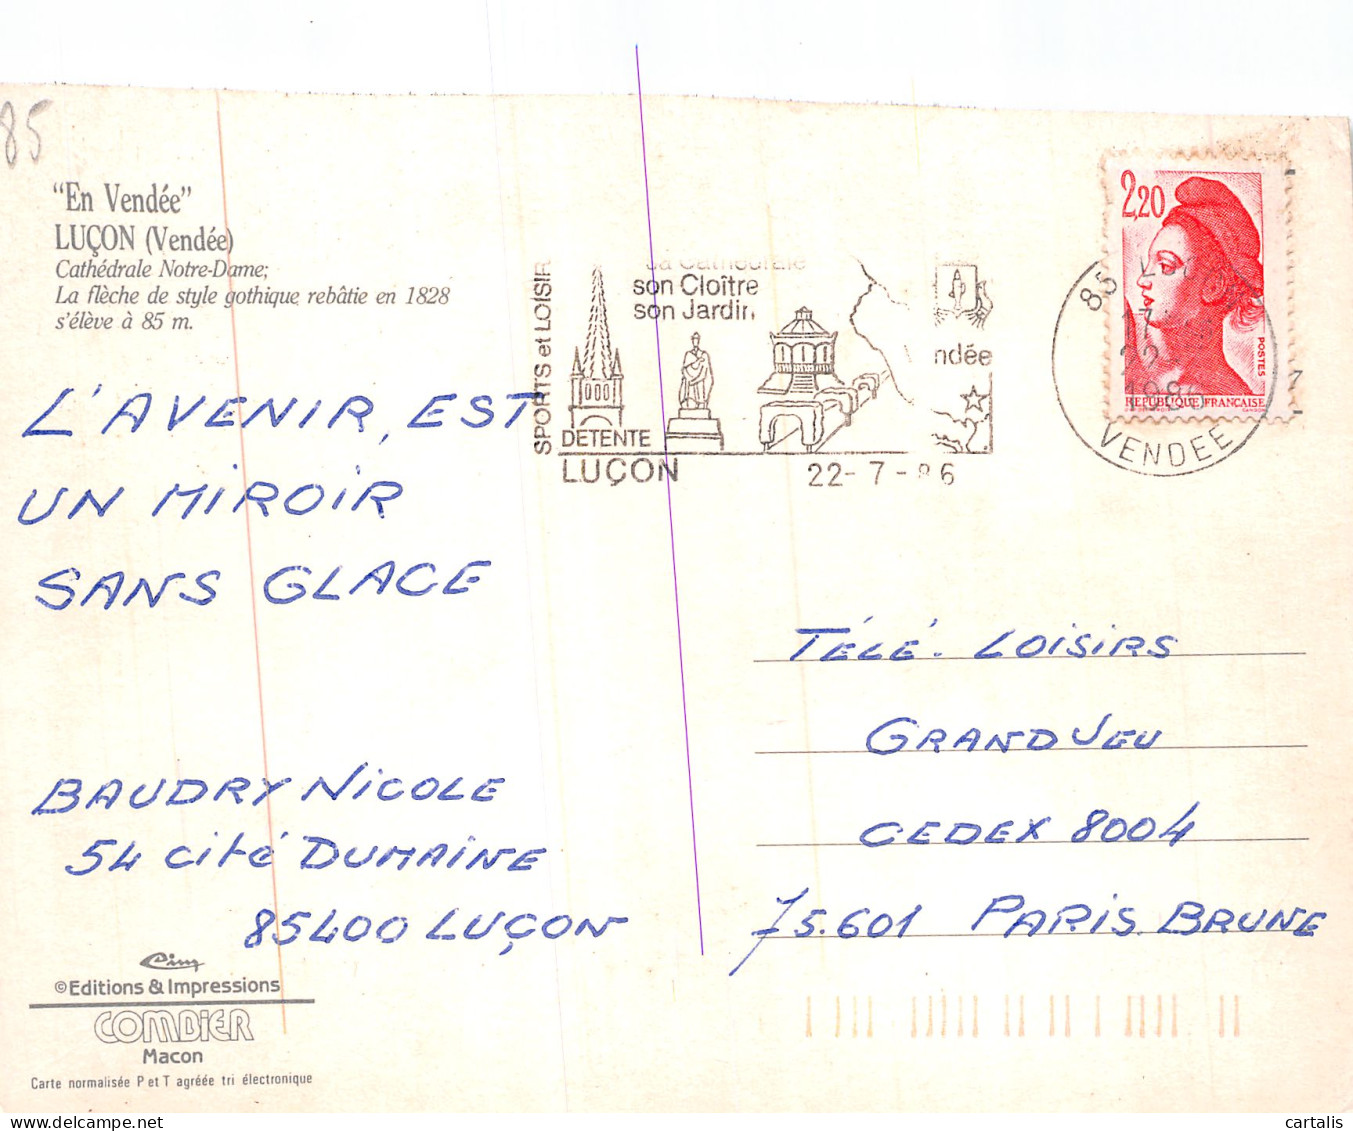 85
"En Vendée"
LUÇON (Vendée)
Cathédrale Notre-Dame;
La flèche de style gothique rebâtie en 1828
s'élève à 85 m.
L'AVENIR, EST
UN MIROIR
SANS GLACE
BAUDRY NICOLE
54 Cité DUMAINE
85400 LUÇON
©Editions & Impressions
COMBIER
Macon
Carte normalisée P et T agréée tri électronique
SPORTS et LOISIR
sa Cathédrale
son Cloître
son Jardin
ndée
DETENTE
LUÇON
22-7-86
2,20
POSTES
REPUBLIQUE FRANCAISE
85
17
22-
1986
VENDEE
TÉLÉ. LOISIRS
GRAND JEU
CEDEX 8004
75.601 PARIS BRUNE
cartalis